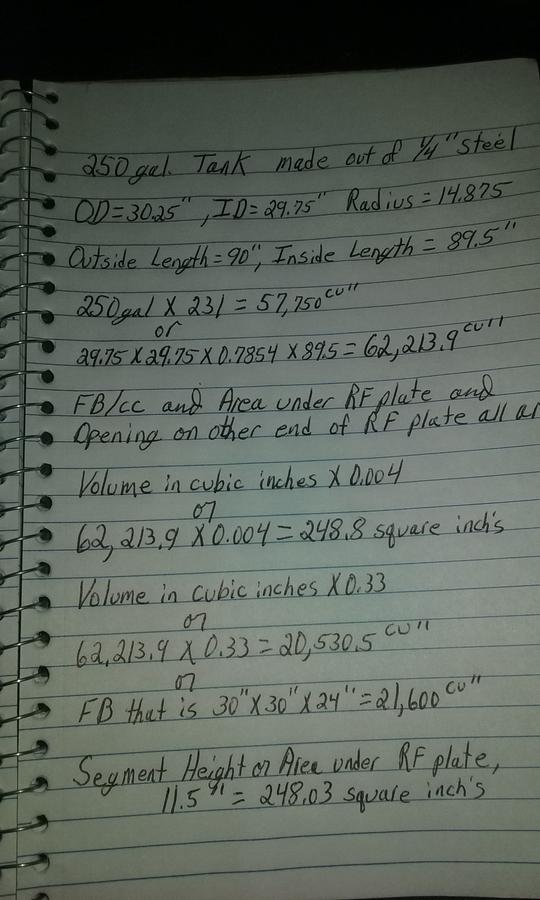 250 gal. Tank made out of 1/4" steel
OD=30.25", ID=29.75" Radius=14.875
Outside Length=90", Inside Length = 89.5"
250gal X 231 = 57,750 cu"
or
29.75 X 29.75 X 0.7854 X 89.5 = 62,213.9 cu"
FB/cc and Area under RF plate and
Opening on other end of RF plate all ar
Volume in cubic inches X 0.004
or
62,213.9 X 0.004 = 248.8 square inch's
Volume in cubic inches X 0.33
or
62,213.9 X 0.33 = 20,530.5 cu"
or
FB that is 30"X30"X24"=21,600 cu"
Segment Height or Area under RF plate,
11.5" = 248.03 square inch's